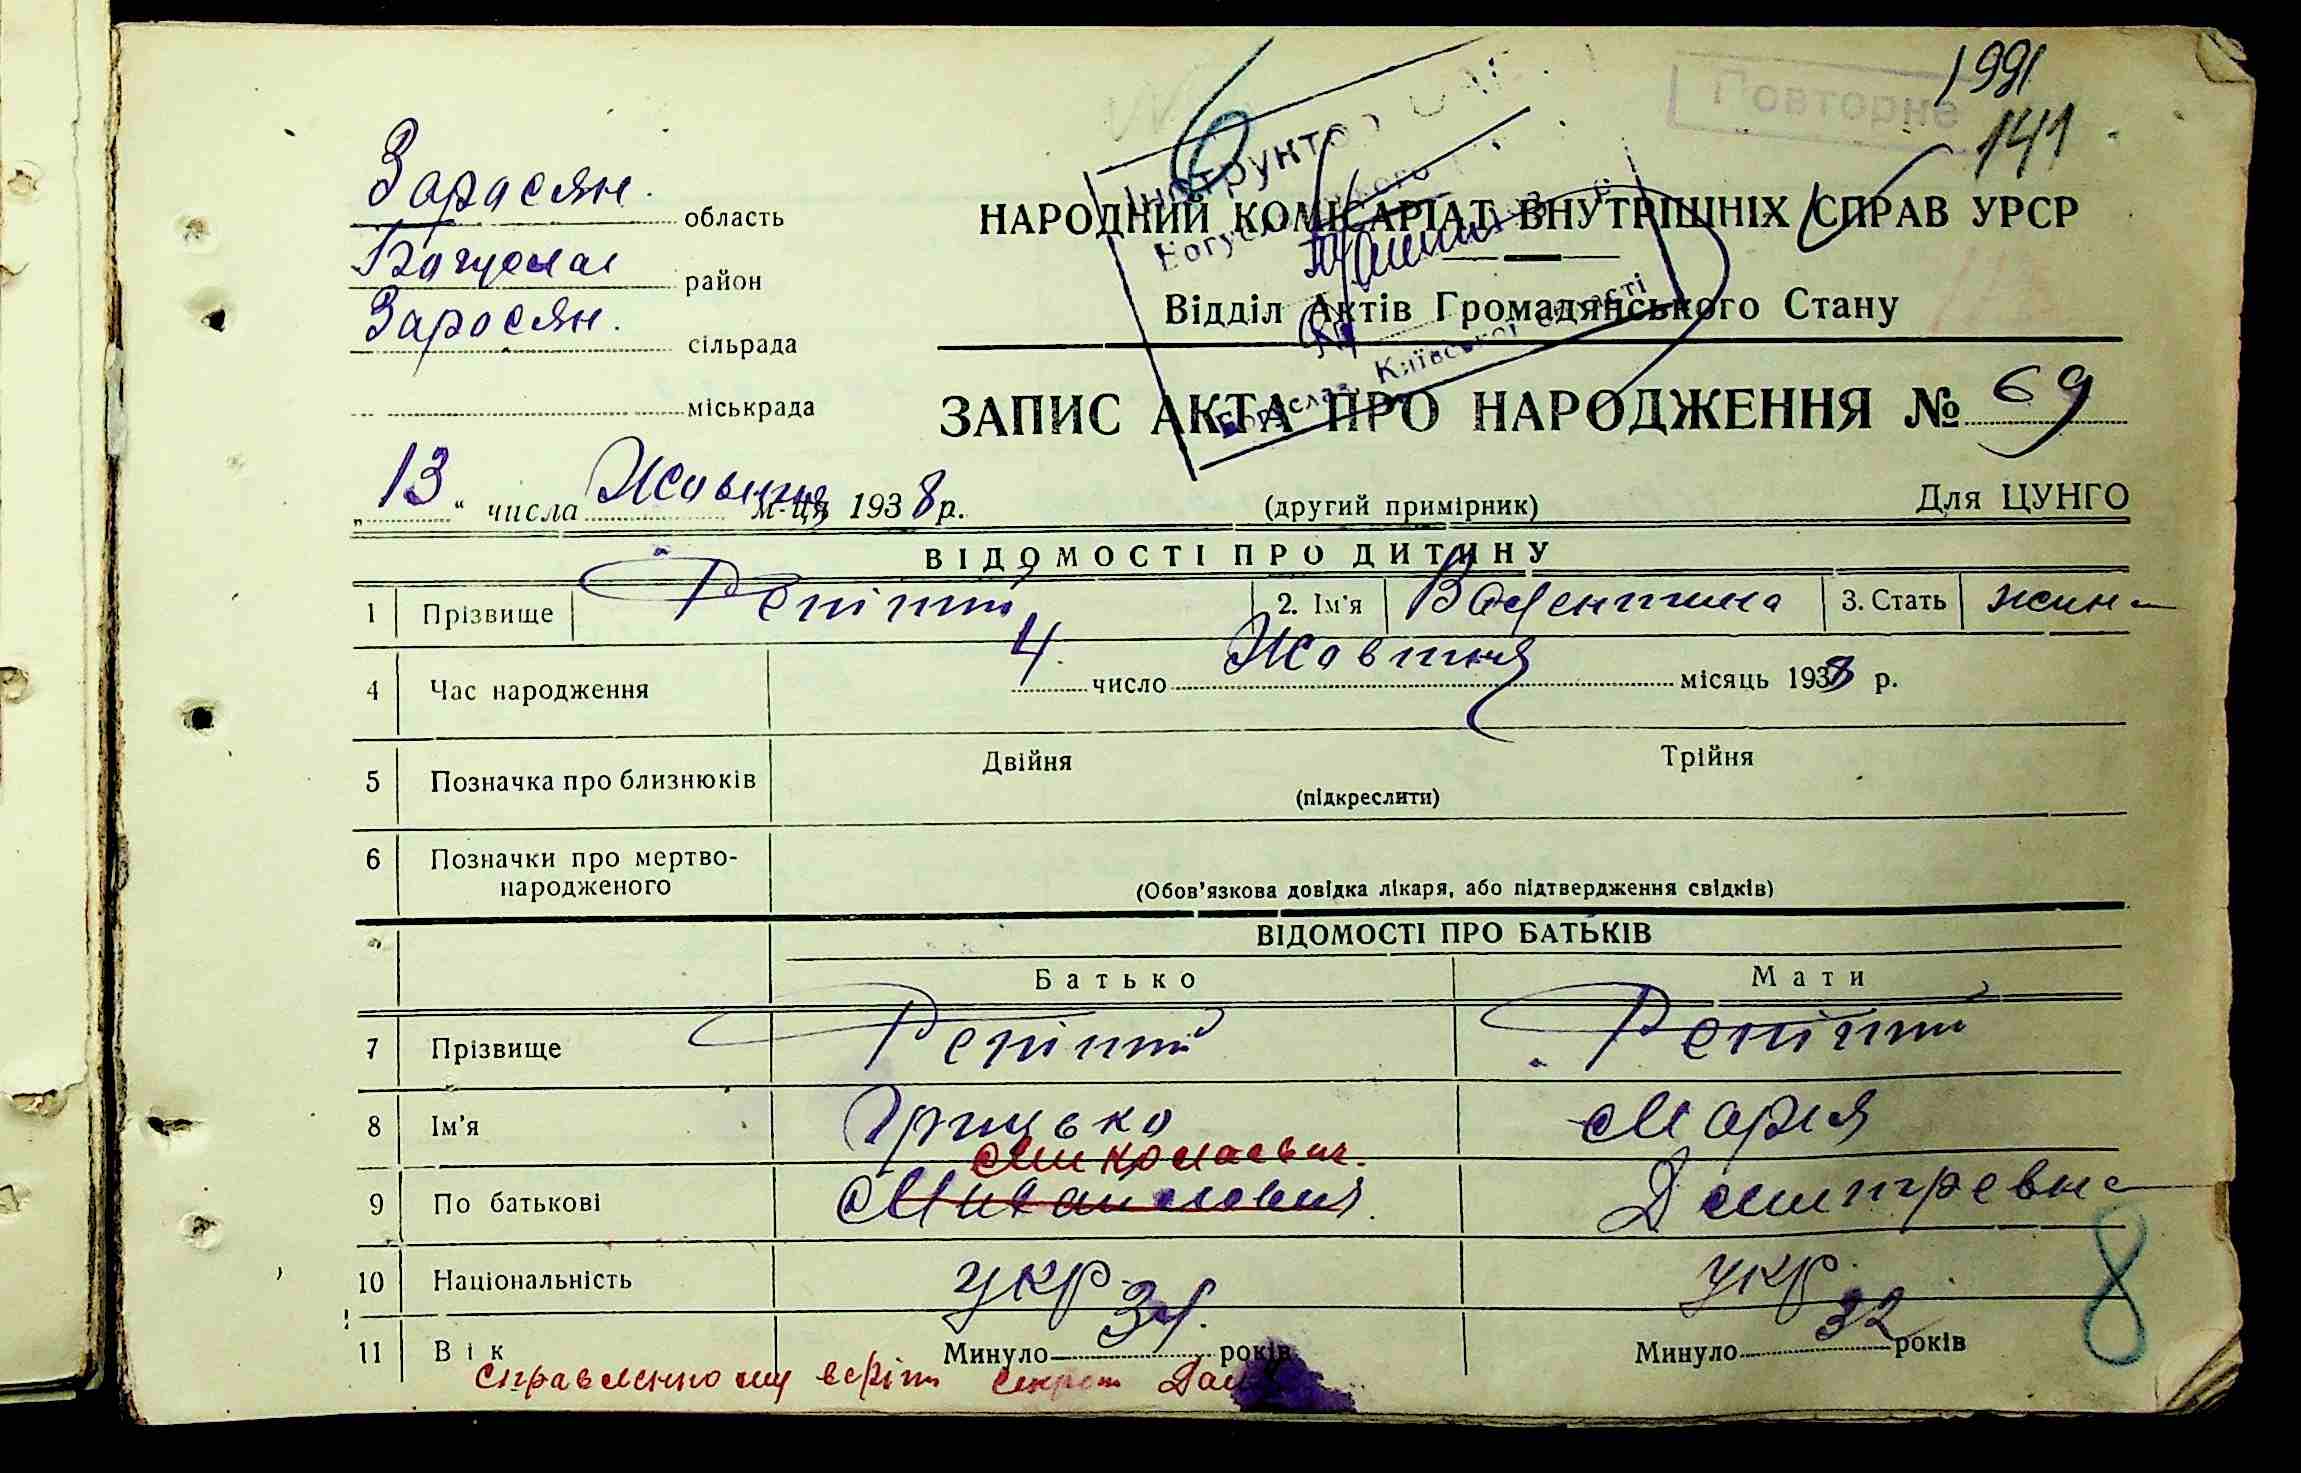 1991
Повторне
141
Зарасян. область
Богуслав район
Заросян. сільрада
міськрада
Інструктор
Богуслав, Київської області
НАРОДНИЙ КОМІСАРІАТ ВНУТРІШНІХ СПРАВ УРСР
Відділ Актів Громадянського Стану
ЗАПИС АКТА ПРО НАРОДЖЕННЯ № 69
„13“ числа Жовтня м-ця 1938 р. (другий примірник) Для ЦУНГО
ВІДОМОСТІ ПРО ДИТИНУ
1 Прізвище Репітй 2. Ім'я Валентина 3. Стать жин
4 Час народження 4 число Жовтня місяць 1938 р.
5 Позначка про близнюків Двійня Трійня
(підкреслити)
6 Позначки про мертво-
народженого (Обов'язкова довідка лікаря, або підтвердження свідків)
ВІДОМОСТІ ПРО БАТЬКІВ
Батько Мати
7 Прізвище Репітй Репітй
8 Ім'я Грицько Мария
Миколаевич.
9 По батькові Михайлович. Дмитревна
10 Національність укр. укр.
11 Вік Минуло 34. років Минуло 32 років
справленному веріть секрет
8